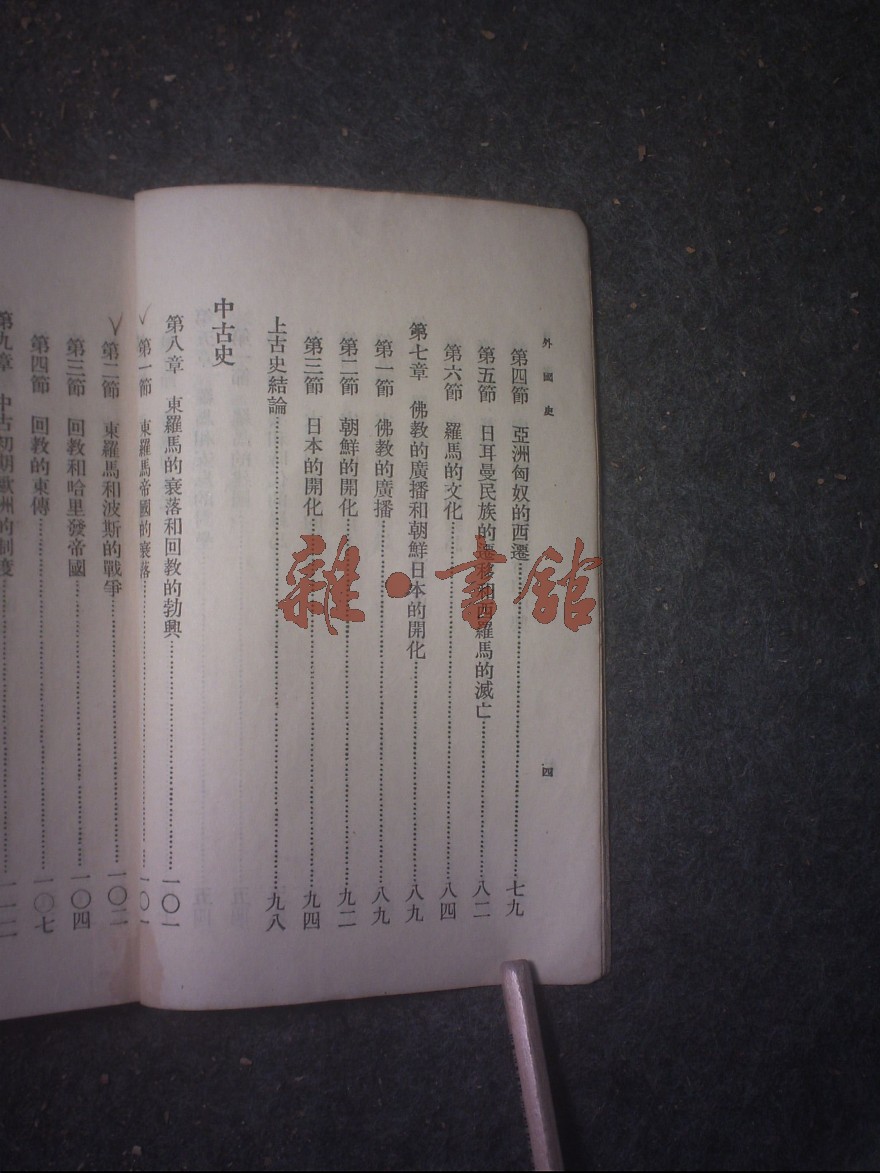 外國史
四
第四節 亞洲匈奴的西遷……七九
第五節 日耳曼民族的遷移和西羅馬的滅亡……八二
第六節 羅馬的文化……八四
第七章 佛教的廣播和朝鮮日本的開化……八九
第一節 佛教的廣播……八九
第二節 朝鮮的開化……九二
第三節 日本的開化……九四
上古史結論……九八
中古史
第八章 東羅馬的衰落和回教的勃興……一〇一
第一節 東羅馬帝國的衰落……一〇一
第二節 東羅馬和波斯的戰爭……一〇二
第三節 回教和哈里發帝國……一〇四
第四節 回教的東傳……一〇七
第九章 中古初期歐洲的制度……一一二
雜·書館